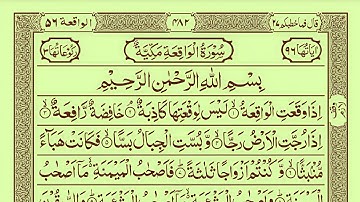 قال فما خطبكم ٢٧ ٣٨٢ الواقعة ٥٦
اٰیاتها ٩٦ سُوْرَةُ الْوَاقِعَةِ مَكِّيَّةٌ رکوعاتها ٣
بِسْمِ اللّٰهِ الرَّحْمٰنِ الرَّحِيْمِ
اِذَا وَقَعَتِ الْوَاقِعَةُ ۙ لَيْسَ لِوَقْعَتِهَا كَاذِبَةٌ ۘ خَافِضَةٌ رَّافِعَةٌ ۙ
اِذَا رُجَّتِ الْاَرْضُ رَجًّا ۙ وَّبُسَّتِ الْجِبَالُ بَسًّا ۙ فَكَانَتْ هَبَآءً
مُّنْۢبَثًّا ۙ وَّكُنْتُمْ اَزْوَاجًا ثَلٰثَةً ؕ فَاَصْحٰبُ الْمَيْمَنَةِ ۙ مَاۤ اَصْحٰبُ